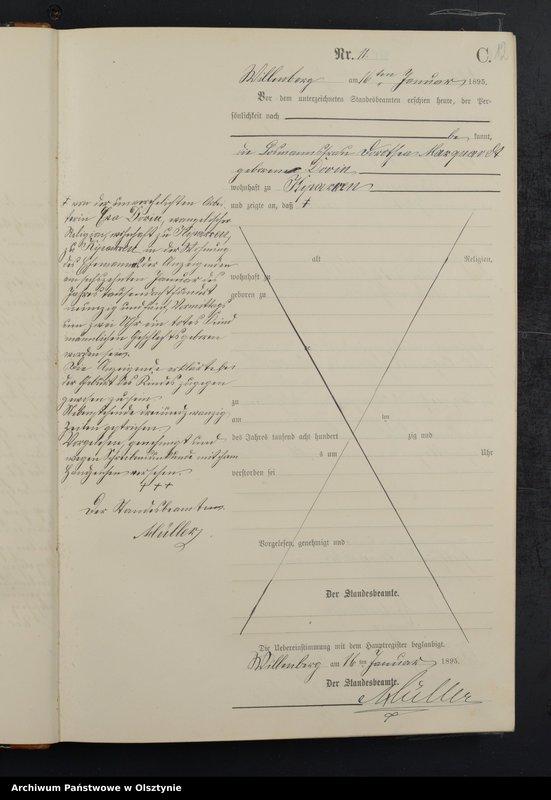 Nr. 11.
C.
12
Willenberg am 16ten Januar 1895.
Vor dem unterzeichneten Standesbeamten erschien heute, der Per-
sönlichkeit nach
be kannt,
die Losmannsfrau Dorothea Marquardt
geborene Dorin
wohnhaft zu Kiparren
und zeigte an, daß +
+ von der unverehelichten Arbei-
terin Eva Dorin, evangelischer
Religion, wohnhaft zu Kiparren,
zu Kiparren in der Wohnung
des Ehemannes der Anzeigenden
am sechszehnten Januar des
Jahres tausend acht hundert
neunzig und fünf, Vormittags
um zwei Uhr ein todtes Kind
männlichen Geschlechts geboren
worden sei.
Die Anzeigende erklärte bei
der Geburt des Kindes zugegen
gewesen zu sein.
Nebenstehende dreiundzwanzig
Zeilen gestrichen.
Vorgelesen, genehmigt und
wegen Schreibensunkunde mit ihrem
Handzeichen versehen.
+++
Der Standesbeamte.
Müller
alt Religion,
wohnhaft zu
geboren zu
zu
am ten
des Jahres tausend acht hundert zig und
s um Uhr
verstorben sei
Vorgelesen, genehmigt und
Der Standesbeamte.
Die Uebereinstimmung mit dem Hauptregister beglaubigt.
Willenberg am 16ten Januar 1895.
Der Standesbeamte.
Müller
Archiwum Państwowe w Olsztynie